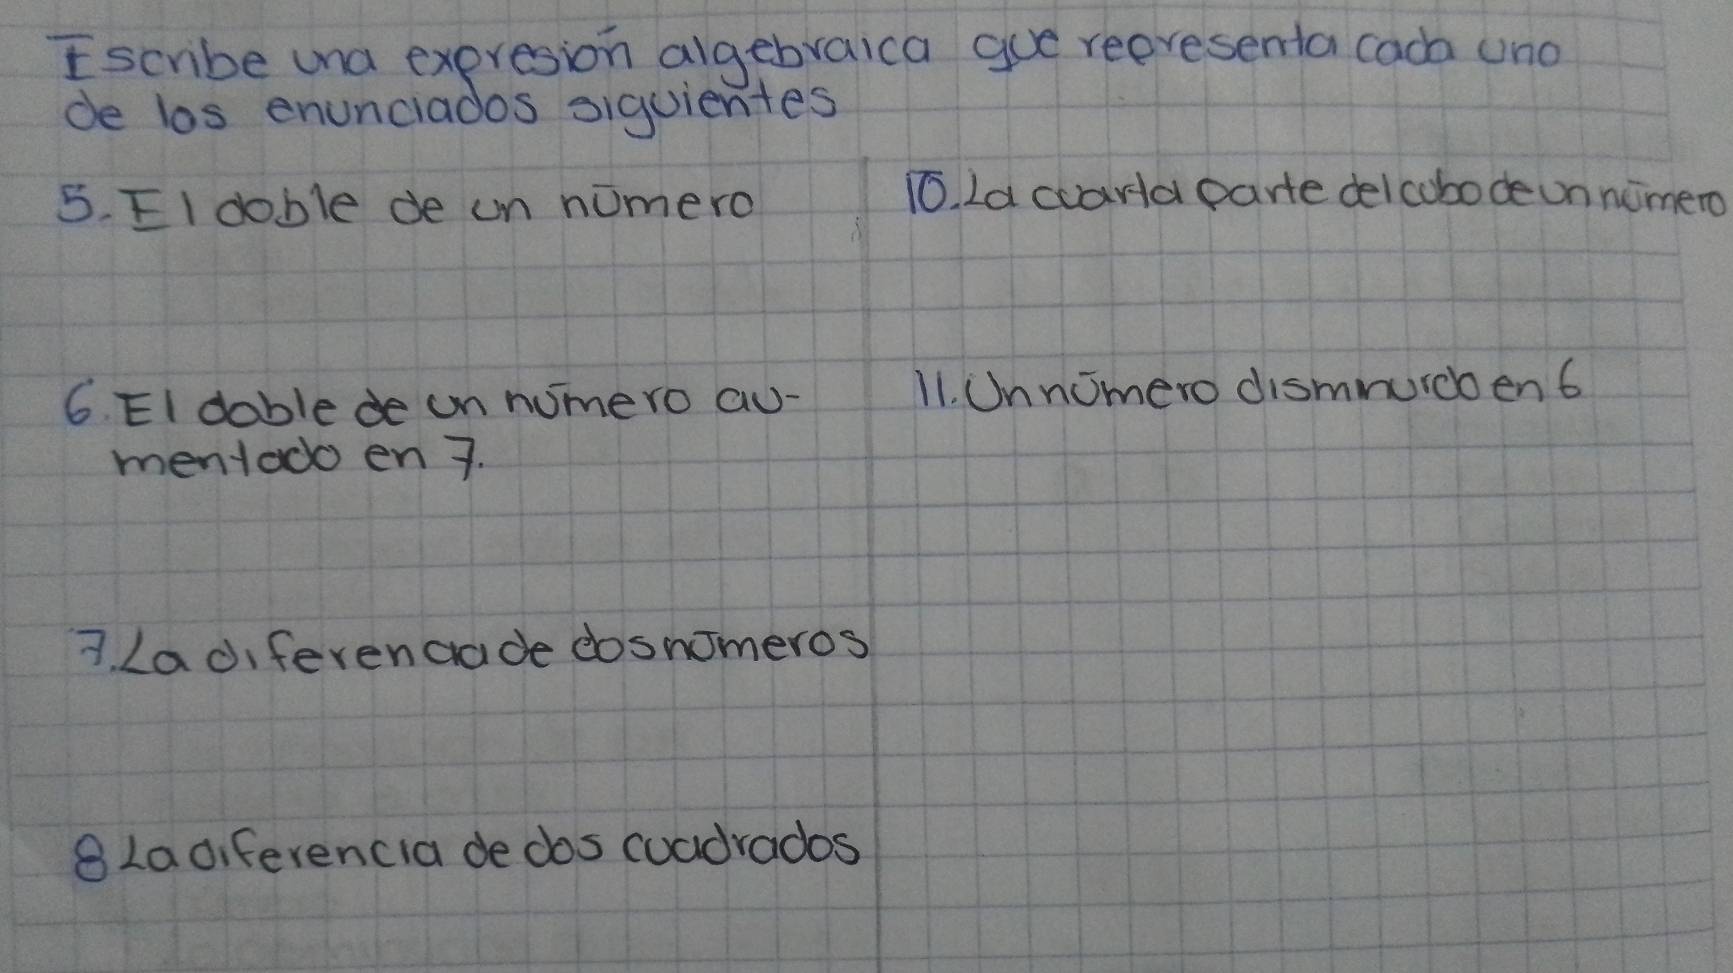 Escribe una expresión algebraica que representa cada uno
de los enunciados siguientes
5. El doble de un número
6. El doble de un número au-
mentado en 7.
7. La diferencia de dos números
8 La diferencia de dos cuadrados
10. La cuarta parte del cubo de un número
11. Un número disminuido en 6